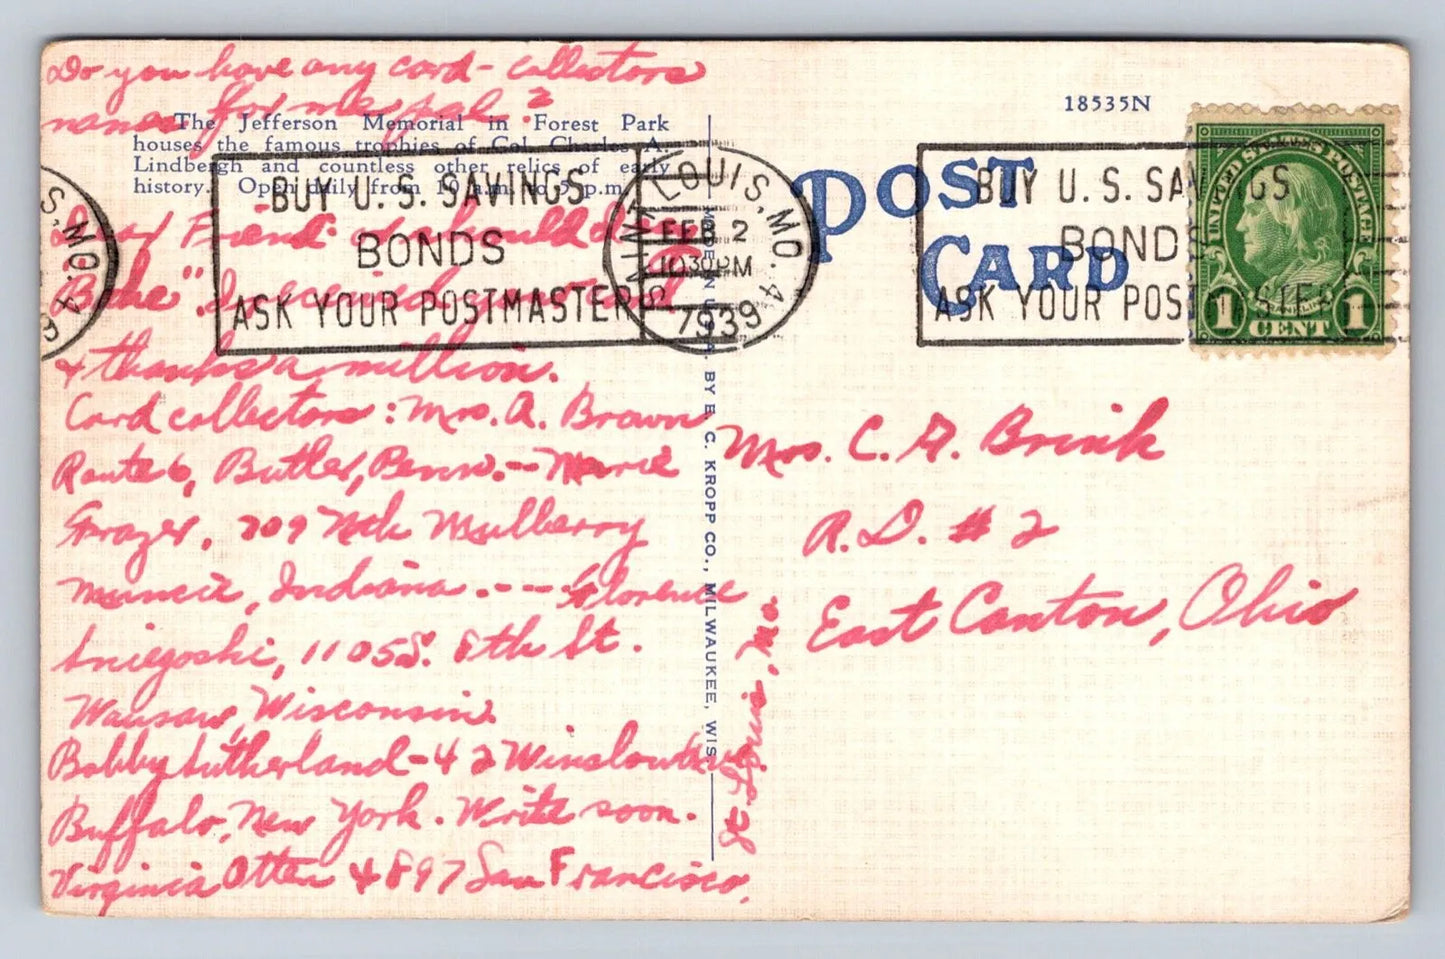 Do you have any card-collectors
names for me, pal?
The Jefferson Memorial in Forest Park
houses the famous trophies of Col. Charles A.
Lindbergh and countless other relics of early
history. Open daily from 10 a.m. to 5 p.m.
Dear Friend I should
received your card
& thanks a million.
Card collectors: Mrs. A. Brown
Route 6, Butler, Penn. -- Marie
Grazer, 709 Nth Mulberry
Muncie, Indiana. --- Florence
1105 S. 8th St.
Wausau, Wisconsin.
Bobby Sutherland - 42 Winslow Ave.
Buffalo, New York. Write soon.
Virginia Otten 4897 San Francisco,
St. Louis, Mo
S, MO. 4
BUY U. S. SAVINGS
BONDS
ASK YOUR POSTMASTER
SAINT LOUIS, MO. 4
FEB 2
10 30 PM
1939
MADE IN U.S.A. BY E. C. KROPP CO., MILWAUKEE, WIS.
18535N
POST
CARD
BUY U. S. SAVINGS
BONDS
ASK YOUR POSTMASTER
UNITED STATES POSTAGE
FRANKLIN
1 CENT 1
Mrs. C. G. Brink
R.D. # 2
East Canton, Ohio